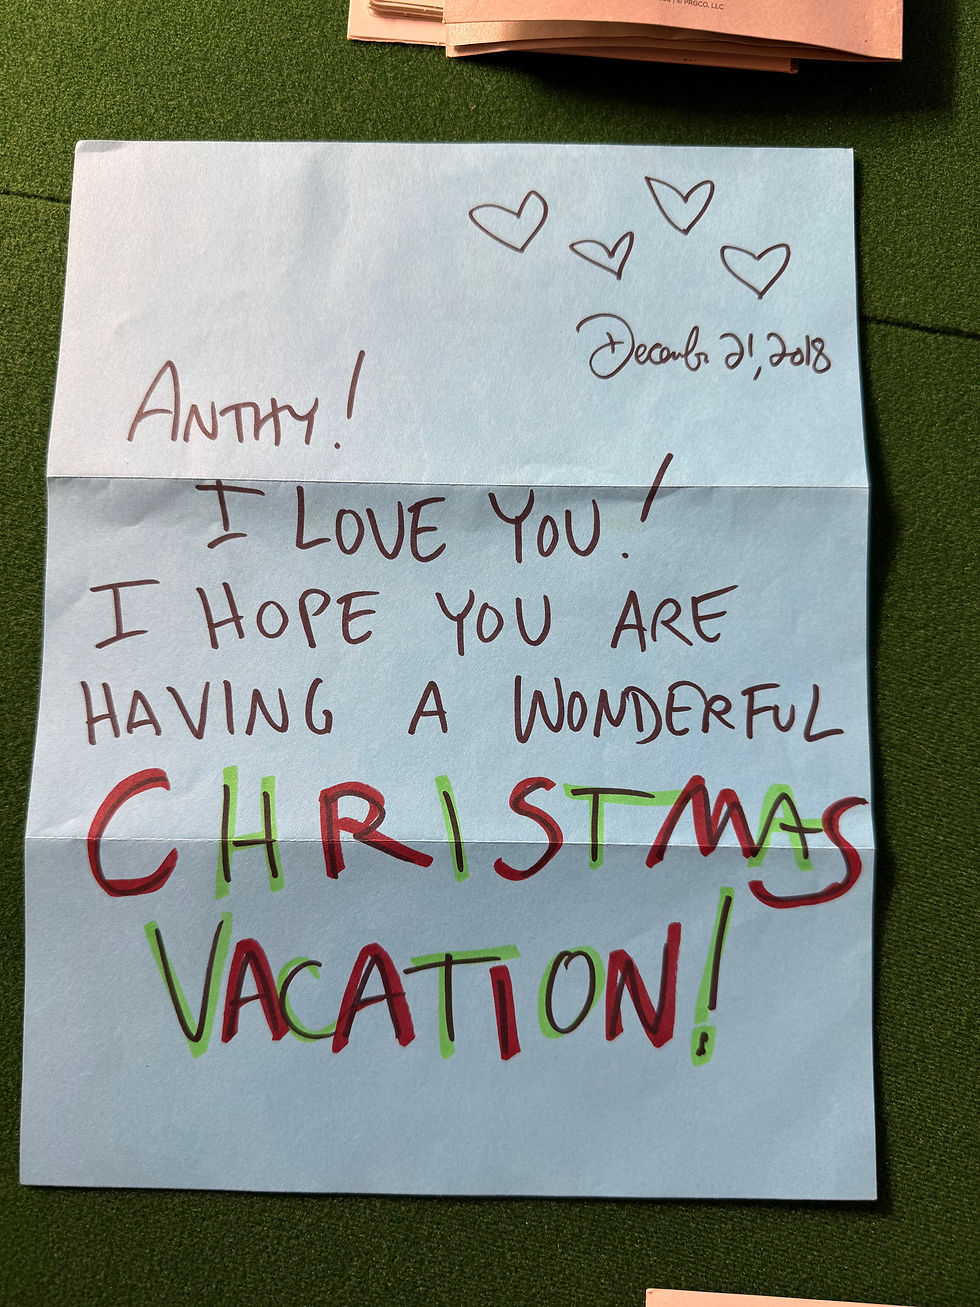 © PRGCO, LLC
December 21, 2018
ANTHY!
I LOVE YOU!
I HOPE YOU ARE
HAVING A WONDERFUL
CHRISTMAS
VACATION!